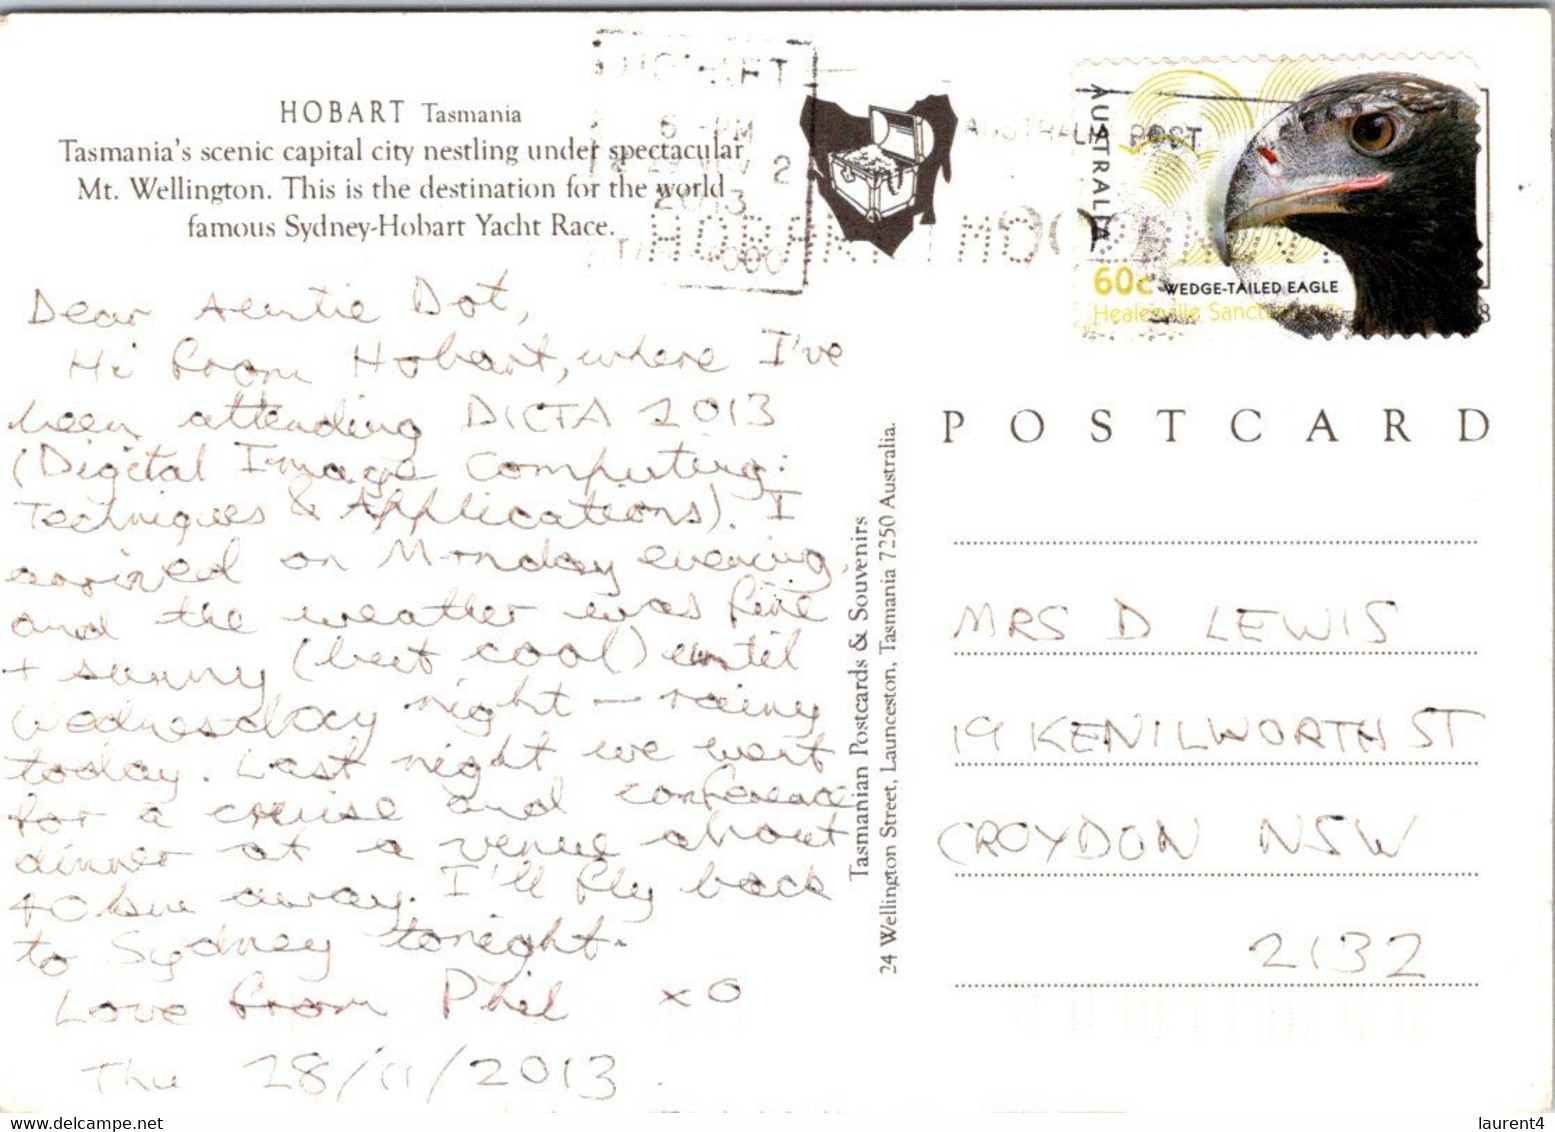 HOBART Tasmania
Tasmania's scenic capital city nestling under spectacular
Mt. Wellington. This is the destination for the world
famous Sydney-Hobart Yacht Race.
6 -PM
2013
AUSTRALIA POST
AUSTRALIA
60c WEDGE-TAILED EAGLE
Healesville
Dear Auntie Dot,
Hi from Hobart, where I've
been attending DICTA 2013
(Digital Image Computing:
Techniques & Applications). I
arrived on Monday evening,
and the weather was fine
+ sunny (but cool) until
Wednesday night – rainy
today. Last night we went
for a cruise and conference
dinner at a venue about
40km away. I'll fly back
to Sydney tonight.
Love from Phil xo
Thu 28/11/2013.
Tasmanian Postcards & Souvenirs
24 Wellington Street, Launceston, Tasmania 7250 Australia.
POSTCARD
MRS D LEWIS
19 KENILWORTH ST
CROYDON NSW
2132
delcampe.net
laurent4